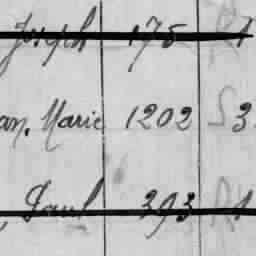 Joseph 175
an. Marie 1202 S3
, Paul 393